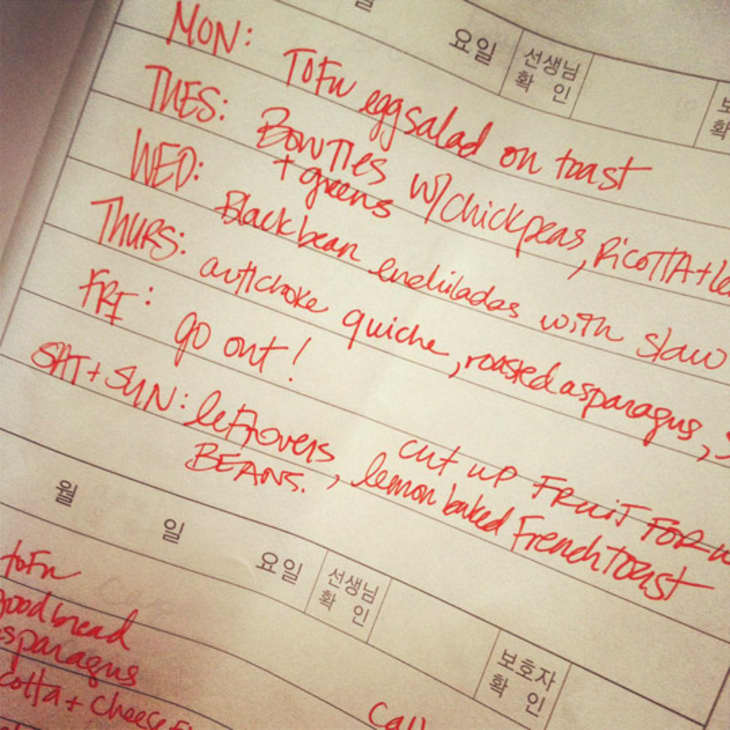 요일 선생님 확인
MON: TOFU egg salad on toast
TUES: BOWTIES w/chickpeas, RICOTTA +
+ greens
WED: Black bean enchiladas with slaw
THURS: artichoke quiche, roasted asparagus,
FRI: go out!
SAT + SUN: leftovers, lemon baked French toast
BEANS.
cut up FRUIT FOR
월 일 요일 선생님 확인 보호자 확인
tofu
good bread
asparagus
cotta + cheese
Call